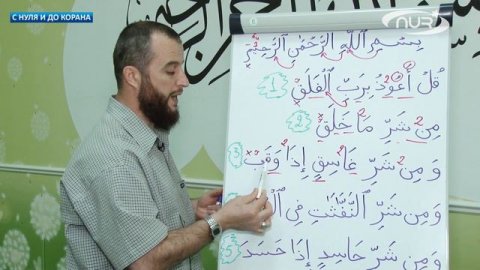 С НУЛЯ И ДО КОРАНА
NUR TV
بِسْمِ اللَّهِ الرَّحْمَٰنِ الرَّحِيمِ
قُلْ أَعُوذُ بِرَبِّ الْفَلَقِ 1
مِن شَرِّ مَا خَلَقَ 2
وَ مِن شَرِّ غَاسِقٍ إِذَا وَقَبَ 3
وَ مِن شَرِّ النَّفَّٰثَٰتِ فِي
وَ مِن شَرِّ حَاسِدٍ إِذَا حَسَدَ 5